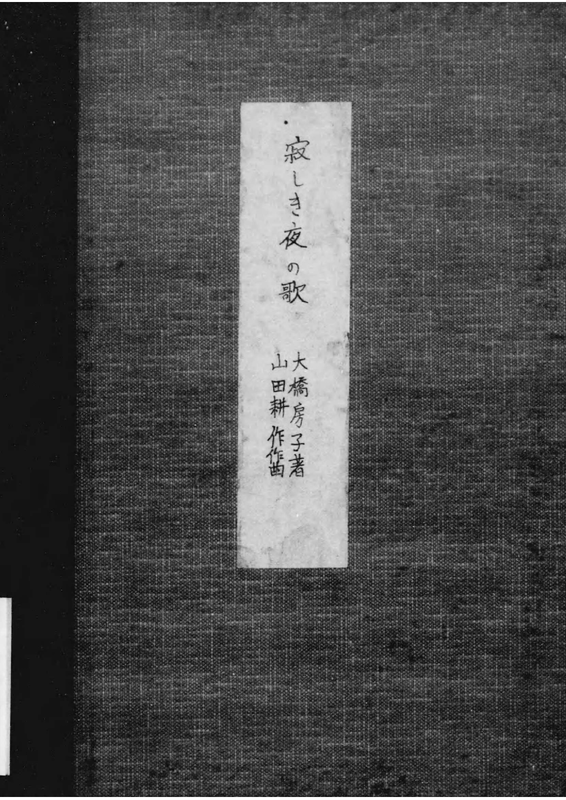 寂しき夜の歌
大橋房子著
山田耕作作曲